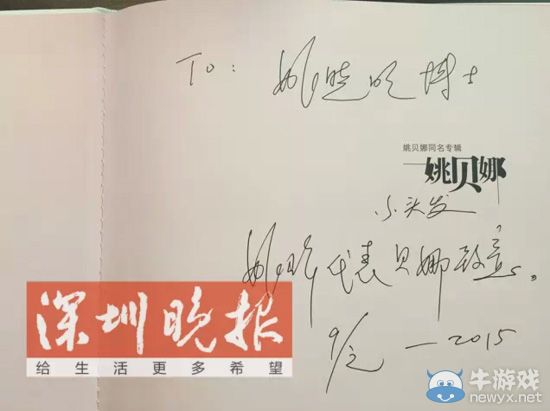 To: 姚晓明博士
姚贝娜同名专辑
姚贝娜
小头发
姚峰代表贝娜致意。
9/2 — 2015
深圳晚报
给生活更多希望
牛游戏
newyx.net